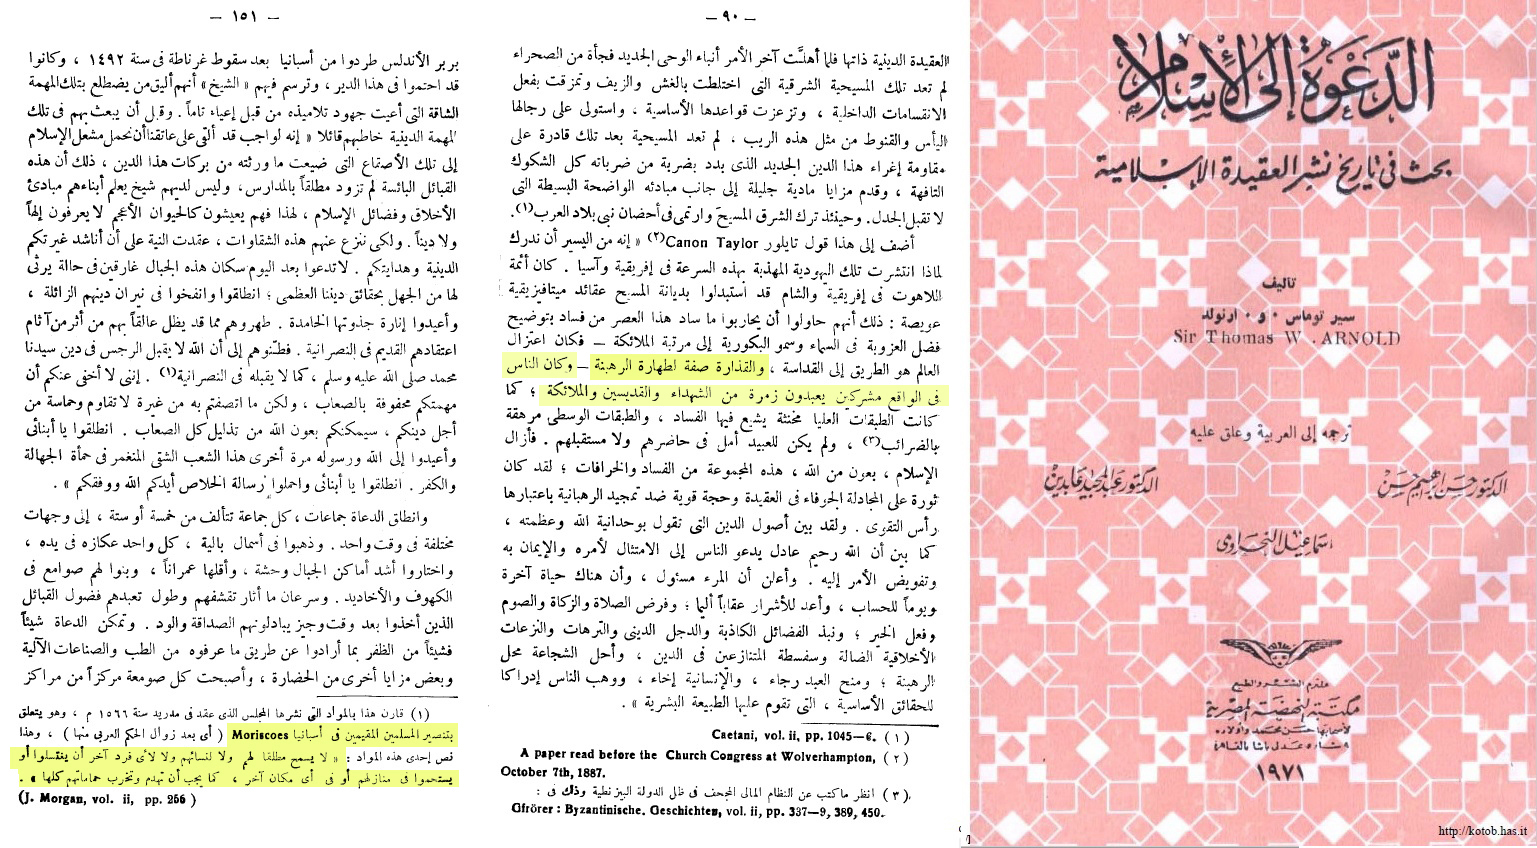 الدَّعْوَةُ إلَى الإسْلام
بحث في تاريخ نشر العقيدة الإسلامية
تأليف
سير توماس . و . أرنولد
Sir Thomas W. ARNOLD
ترجمه إلى العربية وعلق عليه
الدكتور حسن إبراهيم حسن
الدكتور عبد المجيد عابدين
اسماعيل النحراوى
ملتزم النشر والطبع
مكتبة النهضة المصرية
لأصحابها حسن محمد وأولاده
٩ شارع عدلى باشا بالقاهرة
١٩٧١
http://kotob.has.it
— ٩٠ —
العقيدة الدينية ذاتها فلما أهلَّت آخر الأمر أنباء الوحى الجديد فجأة من الصحراء
لم تعد تلك المسيحية الشرقية التى اختلطت بالغش والزيف وتمزقت بفعل
الانقسامات الداخلية ، وتزعزت قواعدها الأساسية ، واستولى على رجالها
اليأس والقنوط من مثل هذه الريب ، لم تعد المسيحية بعد تلك قادرة على
مقاومة إغراء هذا الدين الجديد الذى بدد بضربة من ضرباته كل الشكوك
التافهة ، وقدم مزايا مادية جليلة إلى جانب مبادئه الواضحة البسيطة التى
لا تقبل الجدل. وحينئذ ترك الشرق المسيحَ وارتمى فى أحضان نبى بلاد العرب(١).
أضف إلى هذا قول تايلور Canon Taylor(٢) « إنه من اليسير أن ندرك
لماذا انتشرت تلك اليهودية المهذبة بهذه السرعة فى إفريقية وآسيا . كان أئمة
اللاهوت فى إفريقية والشام قد استبدلوا بديانة المسيح عقائد ميتافيزيقية
عويصة : ذلك أنهم حاولوا أن يحاربوا ما ساد هذا العصر من فساد بتوضيح
فضل العزوبة فى السماء وسمو البكورية إلى مرتبة الملائكة — فكان اعتزال
العالم هو الطريق إلى القداسة ، والقذارة صفة لطهارة الرهبنة — وكان الناس
فى الواقع مشركين يعبدون زمرة من الشهداء والقديسين والملائكة ؛ كما
كانت الطبقات العليا مخنثة يشيع فيها الفساد ، والطبقات الوسطى مرهقة
بالضرائب(٣) ، ولم يكن للعبيد أمل فى حاضرهم ولا مستقبلهم . فأزال
الإسلام ، بعون من الله ، هذه المجموعة من الفساد والخرافات ؛ لقد كان
ثورة على المجادلة الجوفاء فى العقيدة وحجة قوية ضد تمجيد الرهبانية باعتبارها
رأس التقوى . ولقد بين أصول الدين التى تقول بوحدانية الله وعظمته ،
كما بين أن الله رحيم عادل يدعو الناس إلى الامتثال لأمره والإيمان به
وتفويض الأمر إليه . وأعلن أن المرء مسئول ، وأن هناك حياة آخرة
ويوماً للحساب ، وأعد للأشرار عقاباً أليما ؛ وفرض الصلاة والزكاة والصوم
وفعل الخير ؛ ونبذ الفضائل الكاذبة والدجل الدينى والترهات والنزعات
الأخلاقية الضالة وسفسطة المتنازعين فى الدين ، وأحل الشجاعة محل
الرهبنة ؛ ومنح العبد رجاء ، والإنسانية إخاء ، ووهب الناس إدراكا
للحقائق الأساسية ، التى تقوم عليها الطبيعة البشرية » .
(١) Caetani, vol. ii, pp. 1045—6.
(٢) A paper read before the Church Congress at Wolverhampton,
October 7th, 1887.
(٣) انظر ماكتب عن النظام المالى المجحف فى ظل الدولة البيزنطية وذلك فى :
Gfrörer : Byzantinische. Geschichten, vol. ii, pp. 337—9, 389, 450.
— ١٥١ —
بربر الأندلس طردوا من أسبانيا بعد سقوط غرناطة فى سنة ١٤٩٢ ، وكانوا
قد احتموا فى هذا الدير ، وترسم فيهم « الشيخ » أنهم أليق من يضطلع بتلك المهمة
الشاقة التى أعيت جهود تلاميذه من قبل إعياء تاماً . وقبل أن يبعث بهم فى تلك
المهمة الدينية خاطبهم قائلا « إنه لواجب قد ألقى على عاتقنا أن نحمل مشعل الإسلام
إلى تلك الأصقاع التى ضيعت ما ورثته من بركات هذا الدين ، ذلك أن هذه
القبائل البائسة لم تزود مطلقاً بالمدارس، وليس لديهم شيخ يعلم أبناءهم مبادئ
الأخلاق وفضائل الإسلام ، لهذا فهم يعيشون كالحيوان الأعجم لا يعرفون إلهاً
ولا ديناً . ولكى ننزع عنهم هذه الشقاوات ، عقدت النية على أن أناشد غيرتكم
الدينية وهدايتكم . لا تدعوا بعد اليوم سكان هذه الجبال غارقين فى حالة يرثى
لها من الجهل بحقائق ديننا العظمى ؛ انطلقوا وانفخوا فى نيران دينهم الزائلة ،
وأعيدوا إنارة جذوتها الخامدة . طهروهم مما قد يظل عالقاً بهم من أثر من آثام
اعتقادهم القديم فى النصرانية . فطئنوهم إلى أن الله لا يقبل الرجس فى دين سيدنا
محمد صلى الله عليه وسلم ، كما لا يقبله فى النصرانية(١) . إننى لا أخفى عنكم أن
مهمتكم محفوفة بالصعاب ، ولكن ما اتصفتم به من غيرة لا تقاوم وحماسة من
أجل دينكم ، سيمكنكم بعون الله من تذليل كل الصعاب . انطلقوا يا أبنائى
وأعيدوا إلى الله ورسوله مرة أخرى هذا الشعب الشقى المنغمر فى حمأة الجهالة
والكفر . انطلقوا يا أبنائى واحملوا رسالة الخلاص أيدكم الله ووفقكم » .
وانطلق الدعاة جماعات ، كل جماعة تتألف من خمسة أو ستة ، إلى وجهات
مختلفة فى وقت واحد . وذهبوا فى أسمال بالية ، كل واحد عكازه فى يده ،
واختاروا أشد أماكن الجبال وحشة ، وأقلها عمراناً ، وبنوا لهم صوامع فى
الكهوف والأخاديد . وسرعان ما أثار تقشفهم وطول تعبدهم فضول القبائل
الذين أخذوا بعد وقت وجيز يبادلونهم الصداقة والود . وتمكن الدعاة شيئاً
فشيئاً من الظفر بما أرادوا عن طريق ما عرفوه من الطب والصناعات الآلية
وبعض مزايا أخرى من الحضارة ، وأصبحت كل صومعة مركزاً من مراكز
(١) قارن هذا بالمواد التى نشرها المجلس الذى عقد فى مدريد سنة ١٥٦٦ م ، وهو يتعلق
بتنصير المسلمين المقيمين فى أسبانيا Moriscoes ( أى بعد زوال الحكم العربى منها ) ، وهذا
نص إحدى هذه المواد : « لا يسمح مطلقا لهم ولا لنسائهم ولا لأى فرد آخر أن يغتسلوا أو
يستحموا فى منازلهم أو فى أى مكان آخر ، كما يجب أن تهدم وتخرب حماماتهم كلها » .
(J. Morgan, vol. ii, pp. 256 )